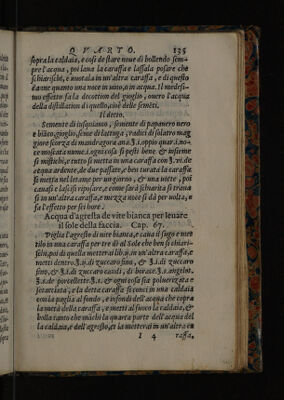 QVARTO. 135
sopra la caldaia, e cosi destare noue di bollendo sem-
pre l'acqua, poi laua la caraffa e lassala posare che
schiarischi, e muotala in un'altra caraffa, e di questo
da me quanto una noce in uino, o in acqua. Il medesi-
mo effetto fa la decottion del gioglio, ouero l'acqua
della distillation di quello, cioè delle semẽti.
Il detto.
Semente di iusquiamo, semente di papauero nero
e biãco, gioglio, seme di lattuga, radici di solatro mag
giore scorza di mandragora ana
noce moscata nume. i. ogni cosa si pesti bene & insieme
si mistichi, e tutto si metta in una caraffa con
acqua ardente, de due passate, e ben turata la caraffa
si metta nel letame per un giorno, & una notte, poi
cauasi e lassisi riposare, e come sarà schiarita si trana
si in un'altra caraffa, e mezza noce si dà per uolta, e
fa l'effetto per sei hore.
Acqua d'agresta de vite bianca per leuare
il sole della faccia. Cap. 67.
Piglia l'agresto di uite bianca, e caua il sugo e met
tilo in una caraffa per tre dì al Sole che ben si chiari-
schi, poi di quella metterai lib. in un'altra caraffa; e
metti dentro di zuccaro fino, & di zuccaro
fino, & di zuccaro candi, di borace
de porcellette & ogni cosa sia poluerizata e
setacciata, e la detta caraffa si conci in una caldaia
con la paglia al fondo, e infondi dell'acqua che copra
la metà della caraffa, e metti al fuoco la caldaia, &
bolla tanto che māchi la quarta parte dell'acqua del
la caldaia, e dell'agresto, et la metterai in un'altra ca
I 4 raffa,